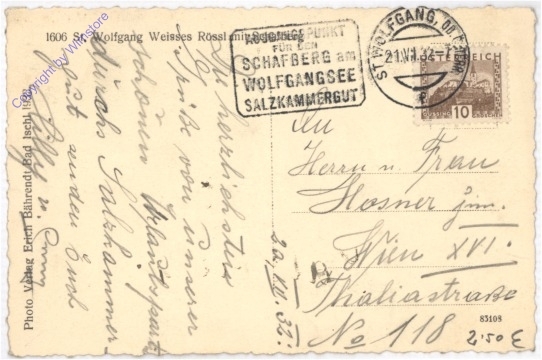 1606 St. Wolfgang Weisses Rössl mit Schafberg
Copyright by Wilnstore
Photo Verlag Erich Bährendt, Bad Ischl
Die herzlichsten
Grüße von unserer
schönen Urlaubspartie
durch Salzkammer-
gut senden Euch
AUSGANGSPUNKT
FÜR DEN
SCHAFBERG am
WOLFGANGSEE
SALZKAMMERGUT
ST. WOLFGANG
21.VII.32
ÖSTERREICH
10
An
Herrn u. Frau
Mosner jun.
Wien XVI.
Thaliastraße
No 118
20.VII.32.
83108
2.50 €